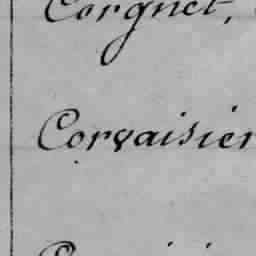 Corgnet,
Corvaisier